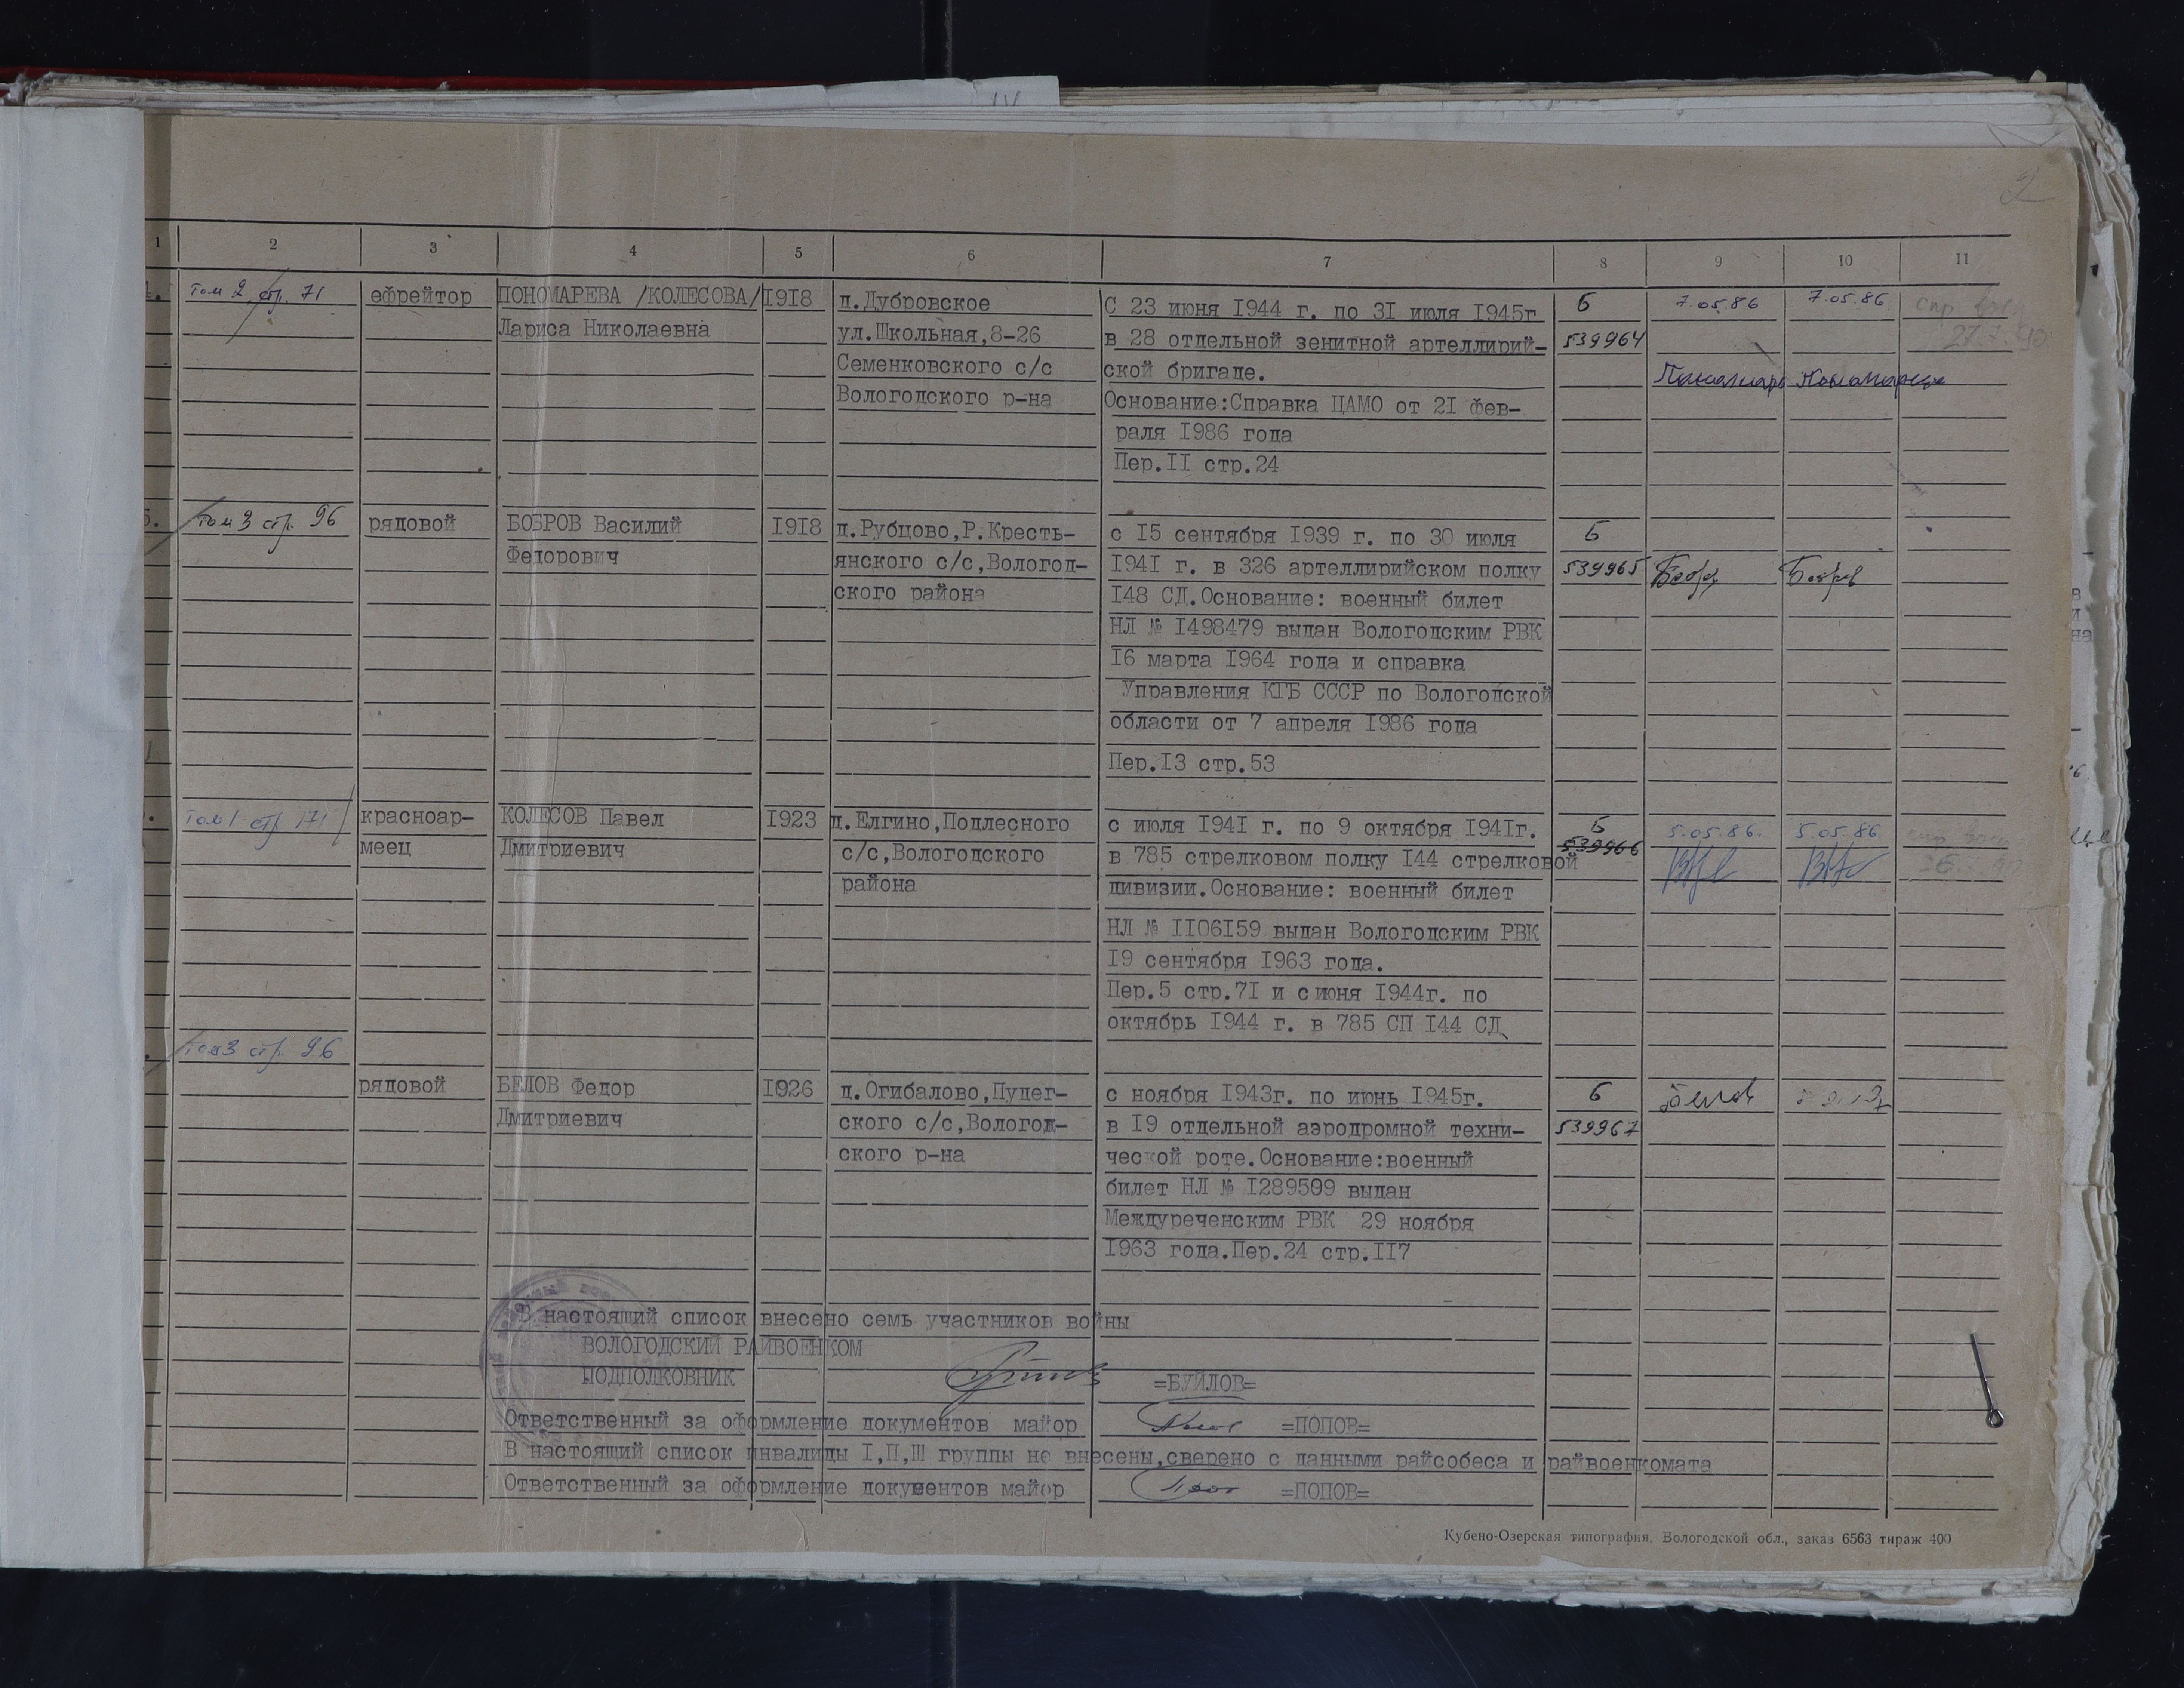 IV
2
1 2 3 4 5 6 7 8 9 10 11
4. том 2 стр. 71
ефрейтор
ПОНОМАРЕВА /КОЛЕСОВА/
Лариса Николаевна
1918
д.Дубровское
ул.Школьная,8-26
Семенковского с/с
Вологодского р-на
С 23 июня 1944 г. по 31 июля 1945г
в 28 отдельной зенитной артеллирий-
ской бригаде.
Основание:Справка ЦАМО от 21 фев-
раля 1986 года
Пер.II стр.24
Б
539964
7.05.86
7.05.86
27.7.90
5. том 3 стр. 96
рядовой
БОБРОВ Василий
Федорович
1918
д.Рубцово,Р.Кресть-
янского с/с,Вологод-
ского района
с 15 сентября 1939 г. по 30 июля
1941 г. в 326 артеллирийском полку
148 СД.Основание: военный билет
НЛ № 1498479 выдан Вологодским РВК
16 марта 1964 года и справка
Управления КГБ СССР по Вологодской
области от 7 апреля 1986 года
Пер.13 стр.53
Б
539965
Бобров
том 1 стр 171
красноар-
меец
КОЛЕСОВ Павел
Дмитриевич
1923
д.Елгино,Подлесного
с/с,Вологодского
района
с июля 1941 г. по 9 октября 1941г.
в 785 стрелковом полку 144 стрелковой
дивизии.Основание: военный билет
НЛ № 1106159 выдан Вологодским РВК
19 сентября 1963 года.
Пер.5 стр.71 и с июня 1944г. по
октябрь 1944 г. в 785 СП 144 СД
Б
539966
5.05.86.
5.05.86
том 3 стр. 96
рядовой
БЕЛОВ Федор
Дмитриевич
1926
д.Огибалово,Пудег-
ского с/с,Вологод-
ского р-на
с ноября 1943г. по июнь 1945г.
в 19 отдельной аэродромной техни-
ческой роте.Основание:военный
билет НЛ № 1289509 выдан
Междуреченским РВК 29 ноября
1963 года.Пер.24 стр.117
Б
539967
Белов
В настоящий список внесено семь участников войны
ВОЛОГОДСКИЙ РАЙВОЕНКОМ
ПОДПОЛКОВНИК =БУЙЛОВ=
Ответственный за оформление документов майор =ПОПОВ=
В настоящий список инвалиды I,П,Ш группы не внесены,сверено с данными райсобеса и райвоенкомата
Ответственный за оформление документов майор =ПОПОВ=
Кубено-Озерская типография, Вологодской обл., заказ 6563 тираж 400